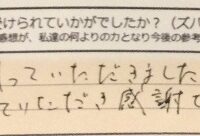 けられていかがでしたか？（ズバ
感想が、私達の何よりの力となり今後の参考
っていただきました
ていただき感謝で